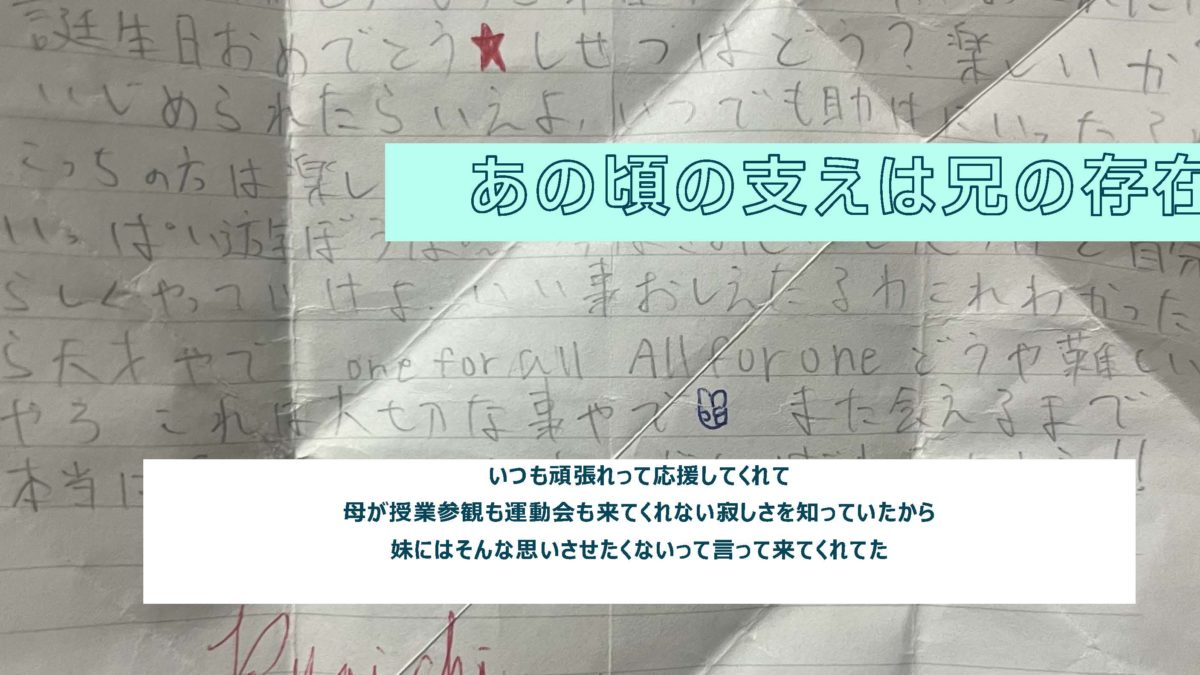 誕生日おめでとう★しせつはどう？楽しいか
いじめられたらいえよ,いつでも助けにいったる
こっちの方は楽し
あの頃の支えは兄の存在
いっぱい遊ぼうな〜
自分
らしくやっていけよ. いい事おしえたるわこれわかった
ら天才やで one for all All for one どうや難しい
やろ これは大切な事やで また会えるまで
本当に
!!
いつも頑張れって応援してくれて
母が授業参観も運動会も来てくれない寂しさを知っていたから
妹にはそんな思いさせたくないって言って来てくれてた